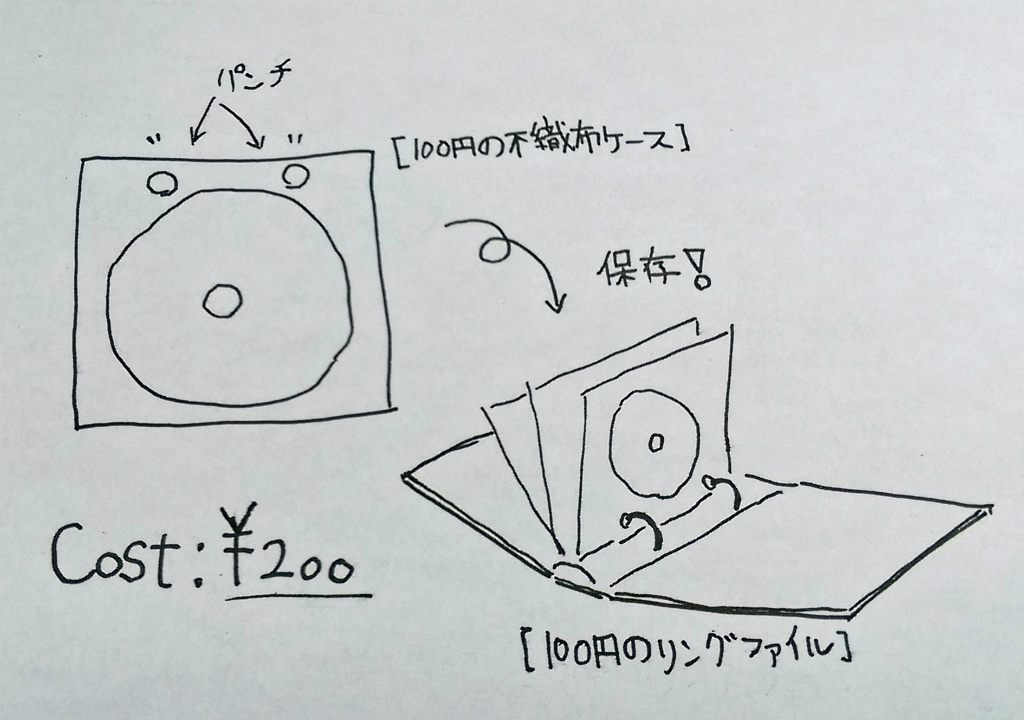 パンチ
[100円の不織布ケース]
保存!
Cost: ¥200
[100円のリングファイル]